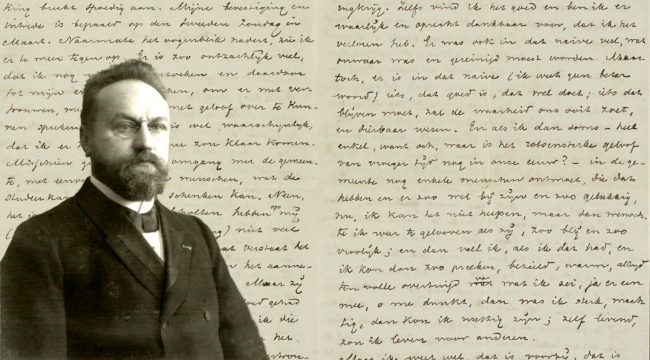 spoedig aan. Mijne bevestiging en
intrede is bepaald op den tweeden zondag in
Maart. Naarmate het oogenblik nadert, zie ik
er te meer tegen op. Er is zoo ontzachlijk veel,
dat ik nog en daardoor
tot mijne om er met ver-
trouwen, met geloof over te kun-
nen spreken. is wel waarschijnlijk,
dat ik er zoo klaar komen.
Misschien omgang met de gemeen-
te, met menschen, wat de
schenken kan. Neen,
het hebben mij
niet veel
verstaat het
het aanne-
Maar zij
gehad
ik die
Zelfs vind ik het goed en ben ik er
waarlijk en oprecht dankbaar voor, dat ik het
verloren heb. Er was ook in dat naieve veel, wat
onwaar was en gereinigd moest worden. Maar
toch, er is in dat naieve (ik weet geen beter
woord) iets, dat goed is, dat wel doet; iets dat
blijven moet, zal de waarheid ons ooit zoet
en dierbaar wezen. En als ik dan soms – heel
enkel, want och, waar is het rotsensterke geloof
van vroeger tijd nog in onze eeuw? – in de ge-
meente nog enkele menschen ontmoet, die dat
hebben en er zoo wel bij zijn en zoo gelukkig,
nu, ik kan het niet helpen, maar dan wensch-
te ik weer te gelooven als zij, zoo blij en zoo
vroolijk; en dan voel ik, als ik dat had, en
ik kon dan zoo preeken, bezield, warm, altijd
ten volle overtuigd van wat ik zei, ja er een
met, o me dunkt, dan was ik sterk, mach-
tig, dan kon ik nuttig zijn; zelf levend,
zou ik leven voor anderen.
ik weet wel, dat is voorbij, dat is